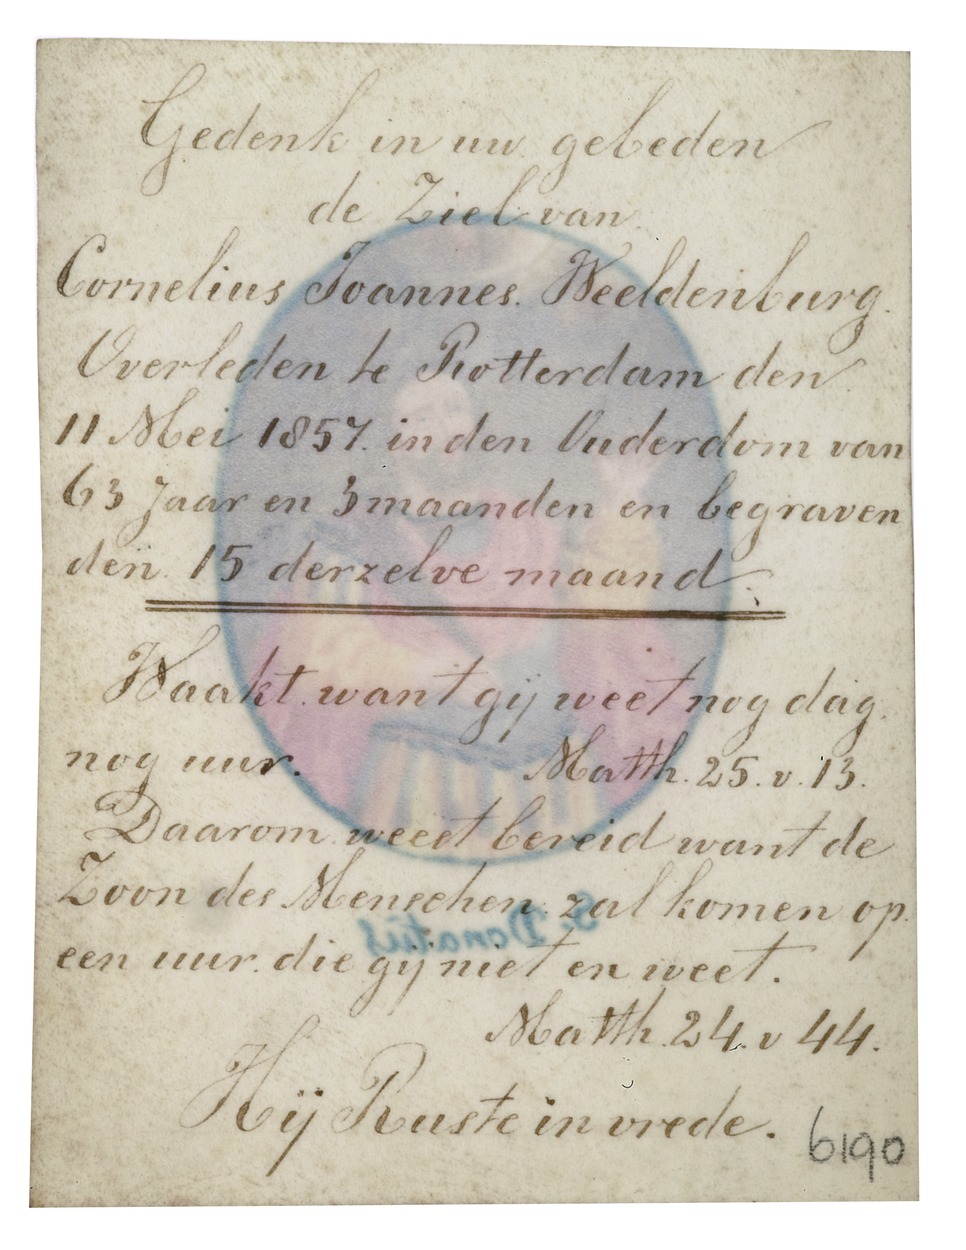 Gedenk in uw gebeden
de Ziel van
Cornelius Joannes. Weeldenburg.
Overleden te Rotterdam den
11 Mei 1857. in den Ouderdom van
63 Jaar en 3 maanden en begraven
den 15 derzelve maand.
Waakt want gij weet nog dag.
nog uur. Matth. 25. v. 13.
Daarom weest bereid want de
Zoon des Menschen zal komen op.
een uur. die gij niet en weet.
S. Donatus
Matth. 24. v 44.
Hij Ruste in vrede.
6190